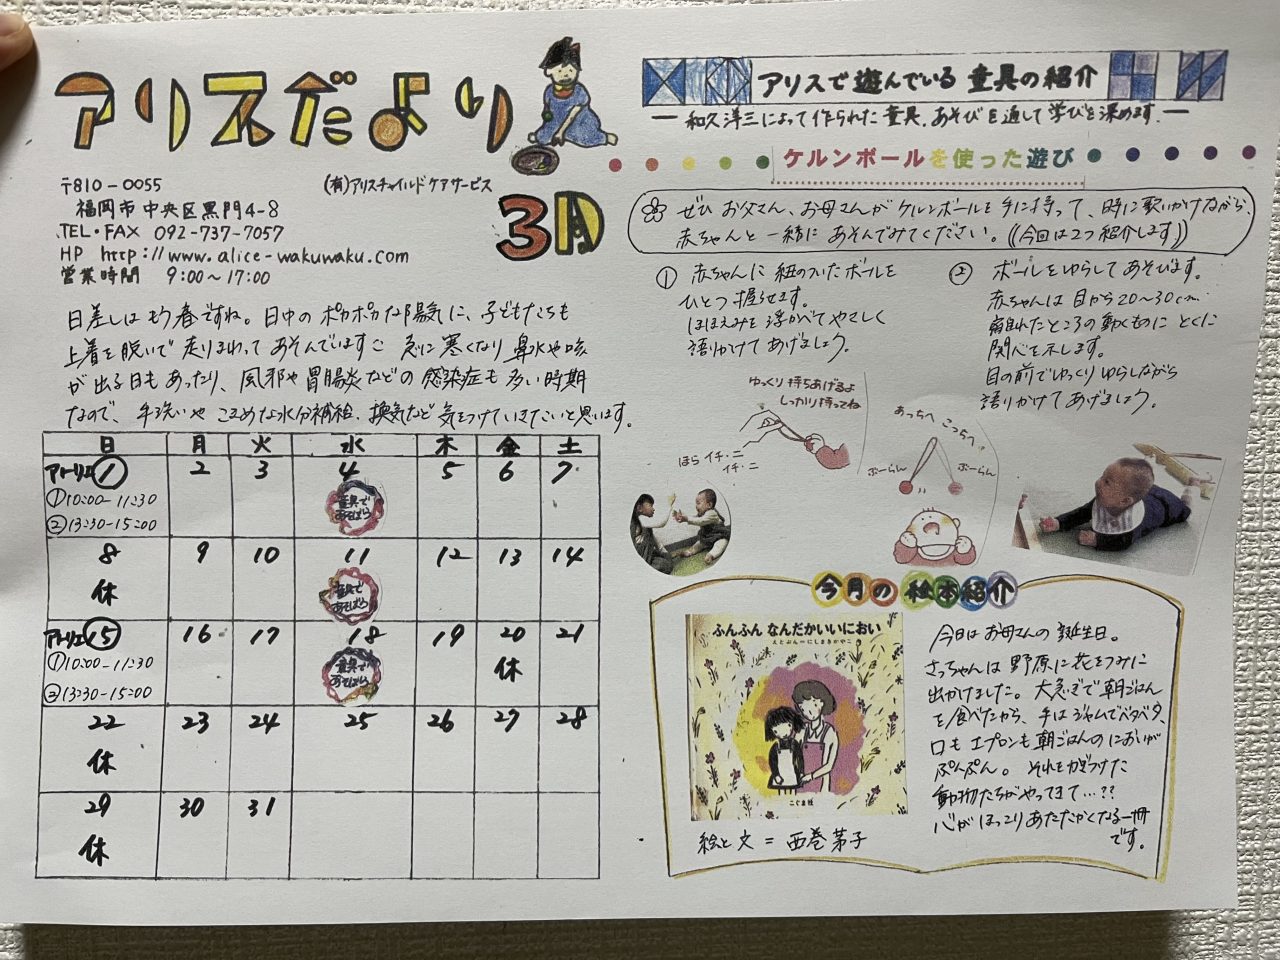 アリスだより
3月
〒810-0055
(有)アリスチャイルドケアサービス
福岡市中央区黒門4-8
TEL・FAX 092-737-7057
HP http://www.alice-wakuwaku.com
営業時間 9:00〜17:00
日差しはもう春ですね。日中のポカポカな陽気に、子どもたちも
上着を脱いで走りまわってあそんでいます。急に寒くなり鼻水や咳
が出る日もあったり、風邪や胃腸炎などの感染症も多い時期
なので、手洗いやこまめな水分補給、換気など気をつけていきたいと思います。
日 月 火 水 木 金 土
アトリエ 1 2 3 4 5 6 7
①10:00-11:30
②13:30-15:00
童具で
あそぼう
8 9 10 11 12 13 14
休
童具で
あそぼう
アトリエ 15 16 17 18 19 20 21
①10:00-11:30
②13:30-15:00
童具で
あそぼう
休
22 23 24 25 26 27 28
休
29 30 31
休
アリスで遊んでいる童具の紹介
― 和久洋三によって作られた童具。あそびを通して学びを深めます。―
ケルンボールを使った遊び
ぜひ お父さん、お母さんがケルンボールを手に持って、時に歌いかけながら、
赤ちゃんと一緒にあそんでみてください。((今回は2つ紹介します))
① 赤ちゃんに紐のついたボールを
ひとつ握らせます。
ほほえみを浮かべてやさしく
語りかけてあげましょう。
ゆっくり持ちあげるよ
しっかり持ってね
ほら イチ・ニ
イチ・ニ
② ボールをゆらしてあそびます。
赤ちゃんは目から20〜30cm
離れたところの動くものにとくに
関心を示します。
目の前でゆっくりゆらしながら
語りかけてあげましょう。
あっちへ こっちへ
ぶーらん
ぶーらん
今月の絵本紹介
ふんふん なんだかいいにおい
えとぶん―にしまきかやこ
こぐま社
絵と文 = 西巻茅子
今日はお母さんの誕生日。
さっちゃんは野原に花をつみに
出かけました。大急ぎで朝ごはん
を食べたから、手はジャムでベタベタ、
口もエプロンも朝ごはんのにおいが
ぷんぷん。それをかぎつけた
動物たちがやってきて…??
心がほっこりあたたかくなる一冊
です。